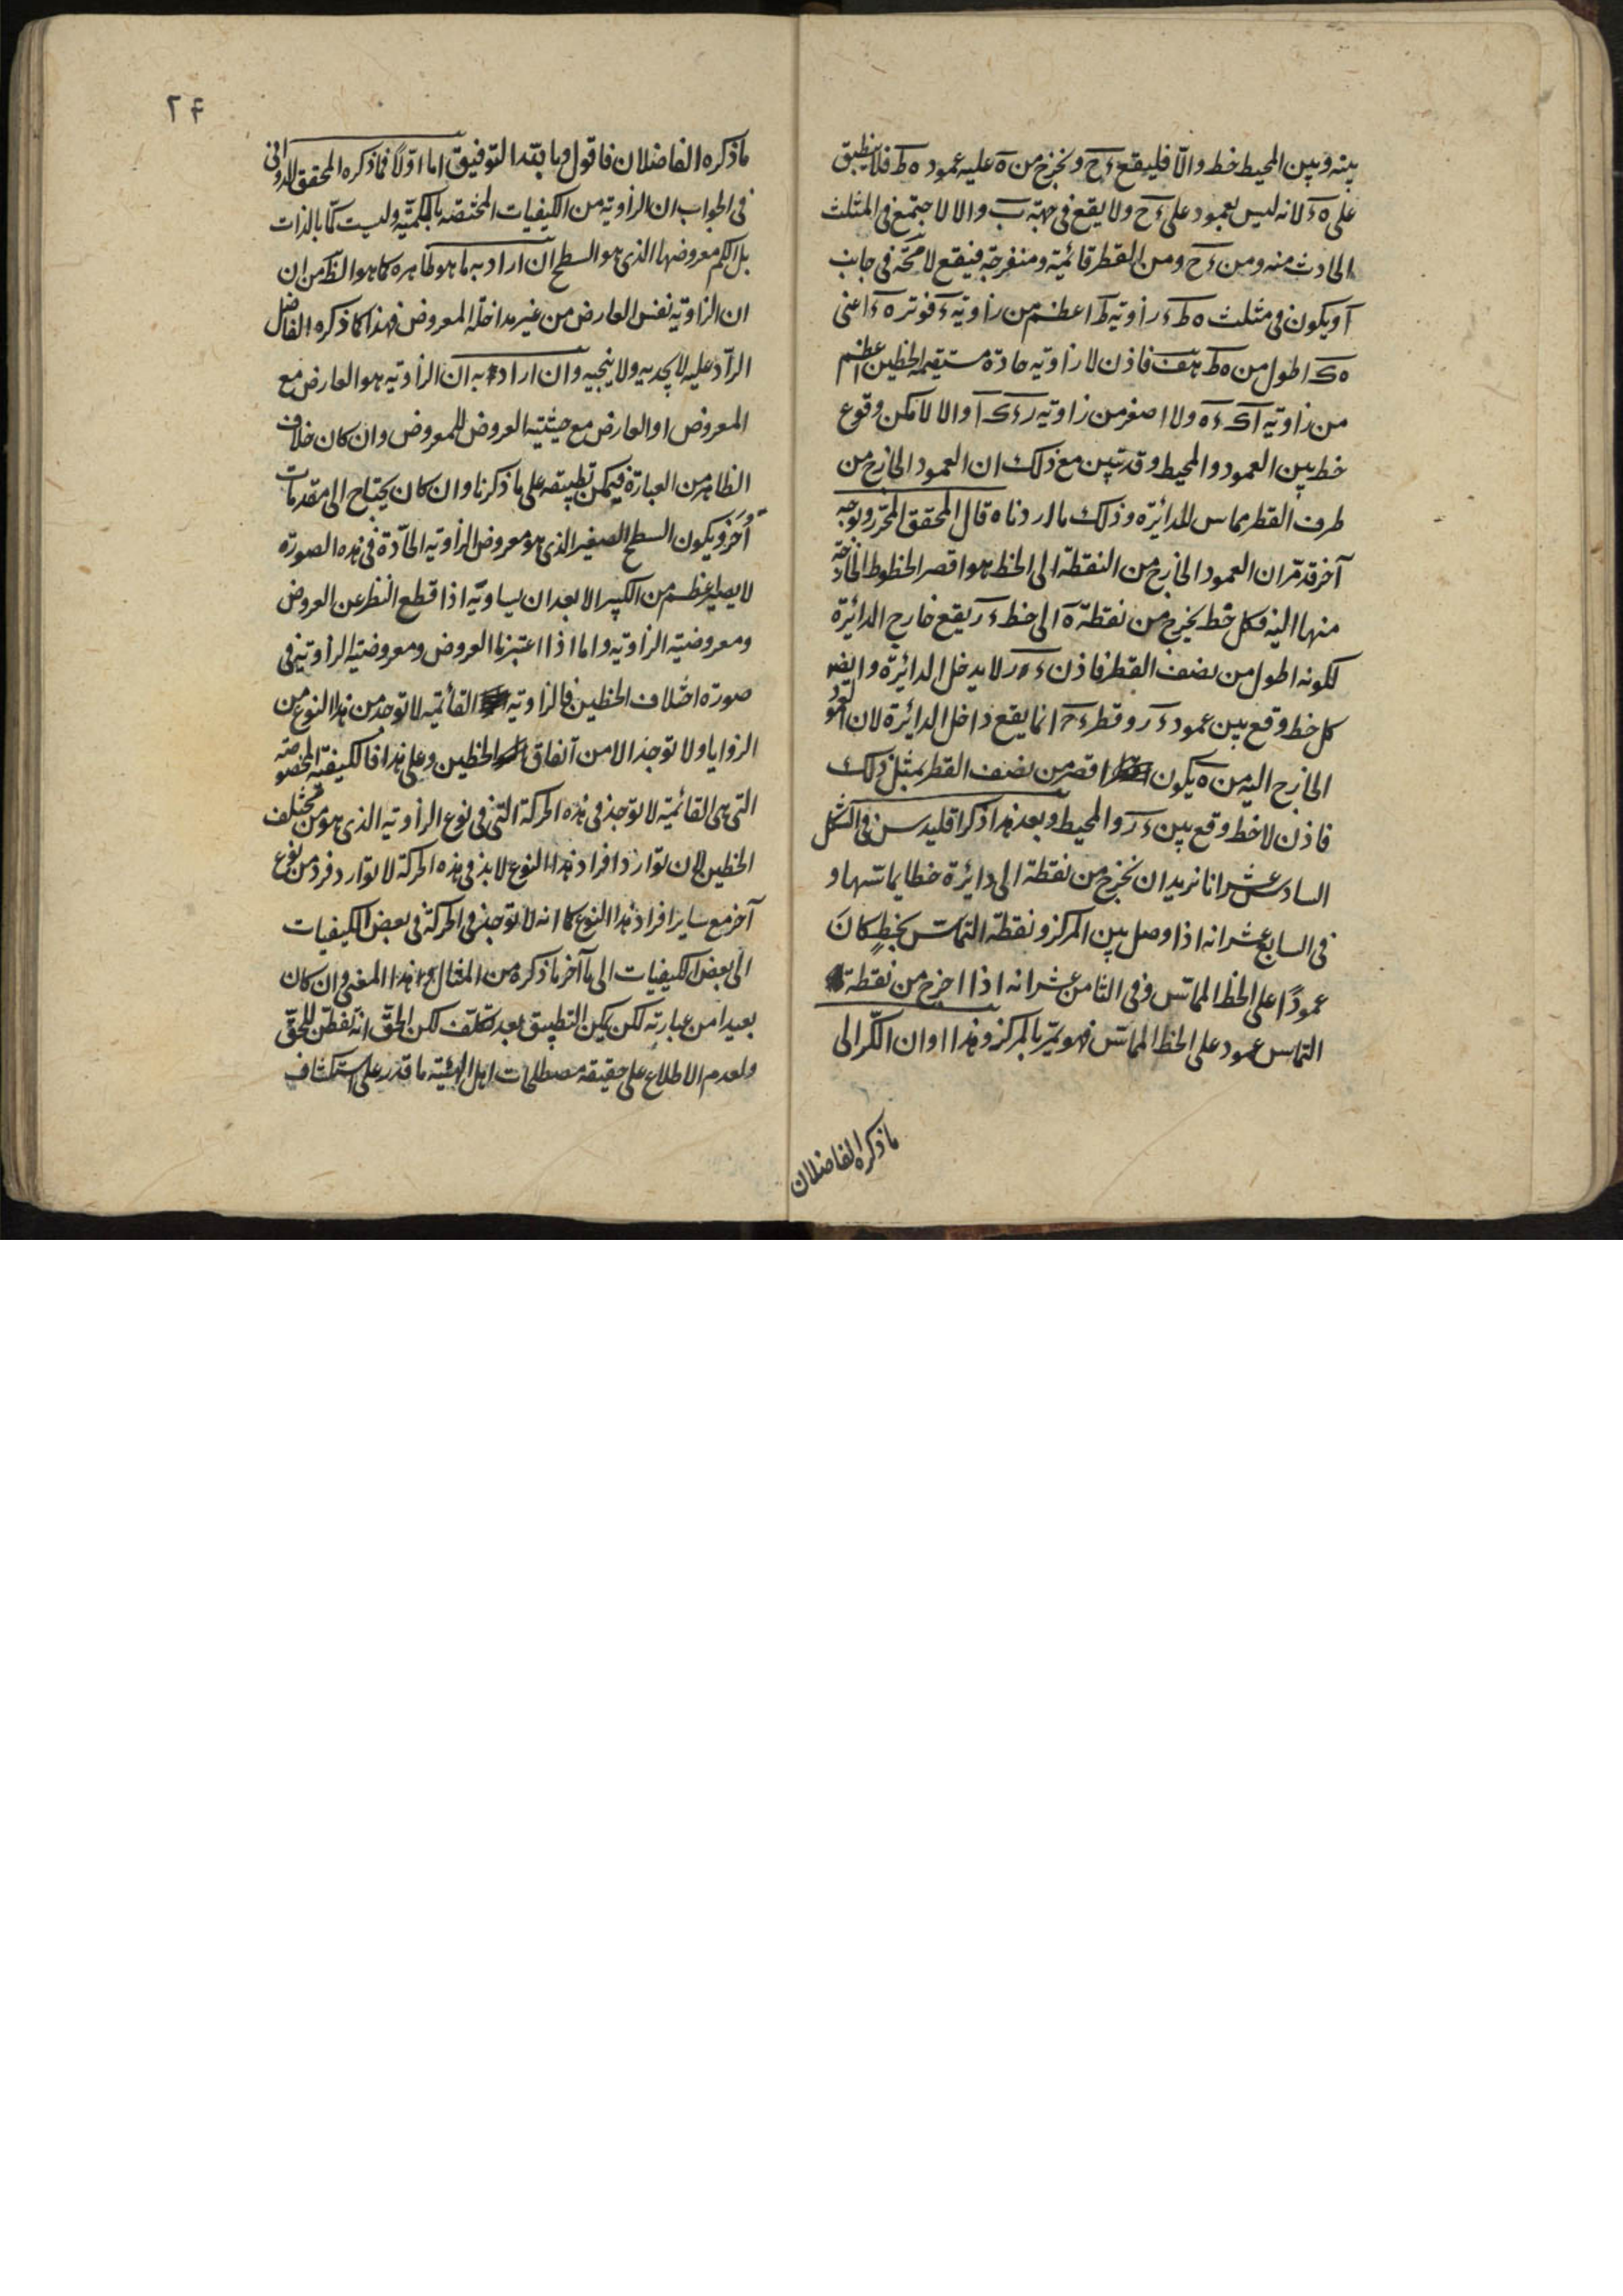 بينه وبين المحيط خط والّا فليقع ءح ونخرج من ه عليه عمود ه ط فلا ينطبق
على ه ء لانه ليس بعمود على ءح ولا يقع فى جهة ب والا لاجتمع فى المثلث
الحادث منه ومن ءح ومن القطر قائمة ومنفرجة فيقع لا محة فى جانب
آ ويكون فى مثلث ه ط ء زاوية ط اعظم من زاوية ء فوتر ه ء اعنى
ه ك اطول من ه ط هف فاذن لا زاوية حادة مستقيمة الخطين اعظم
من زاوية آ ك ء ه ولا اصغر من زاوية ر ء ك آ والا لامكن وقوع
خط بين العمود والمحيط وقد تبين مع ذلك ان العمود الخارج من
طرف القطر مماس للدائرة وذلك ما اردناه قال المحقق المحرر وبوجه
آخر قد مرّ ان العمود الخارج من النقطة الى الخط هو اقصر الخطوط الخارجة
منها اليه فكل خط يخرج من نقطة ه الى خط ء ر يقع خارج الدائرة
لكونه اطول من نصف القطر فاذن ء ر لا يدخل الدائرة وايضا
كل خط وقع بين عمود ء ر وقطر ء ح انما يقع داخل الدائرة لان العمود
الخارج اليه من ه يكون اقصر من نصف القطر بمثل ذلك
فاذن لا خط وقع بين ء ر والمحيط وبعد هذا ذكر اقليدس فى الشكل
السادس عشر انا نريد ان نخرج من نقطة الى دائرة خطا يماسّها و
فى السابع عشر انه اذا وصل بين المركز ونقطة التماسّ بخطٍ كانَ
عمودًا على الخط المماسّ وفى الثامن عشر انه اذا اخرج من نقطة
التماس عمود على الخط المماسّ فهو يمرّ بالمركز وهذا اوان الكّر الى
ما ذكره الفاضلان
٢٤
ما ذكره الفاضلان فاقول وبا لله التوفيق اما اوّلاً فما ذكره المحقق الدوانى
فى الجواب ان الزاوية من الكيفيات المختصة بالكمية وليست كمّا بالذات
بل الكم معروضها الذى هو السطح ان اراد به ما هو ظاهره كما هو الظ من ان
ان الزاوية نفس العارض من غير مداخلة المعروض فهذا كما ذكره الفاضل
الرادّ عليه لا يجديه ولا ينجيه وان اراد به ان الزاوية هو العارض مع
المعروض او العارض مع حيثية العروض للمعروض وان كان خلاف
الظاهر من العبارة فيمكن تطبيقه على ما ذكرنا وان كان يحتاج الى مقدمات
اُخَر ويكون السطح الصغير الذى هو معروض الزاوية الحادّة فى هذه الصورة
لا يصير اعظم من الكبير الا بعد ان يساويه اذا قطع النظر عن العروض
ومعروضية الزاوية واما اذا اعتبرنا العروض ومعروضية الزاوية فى
صورة اختلاف الخطين فالزاوية القائمة لا توجد من هذا النوع من
الزوايا ولا توجد الا من اتفاق الخطين وعلى هذا فالكيفية المخصوصة
التى هى القائمة لا توجد فى هذه الحركة التى فى نوع الزاوية الذى هو من مختلف
الخطين لان توارد افراد هذا النوع لا بد فى هذه الحركة لا توارد فرد من نوع
آخر مع ساير افراد هذا النوع كما انه لا توجد فى الحركة فى بعض الكيفيات
الى بعض الكيفيات الى آخر ما ذكره من المثال وهذا المعنى وان كان
بعيدا من عبارته لكن يمكن التطبيق بعد تكلف لكن الحقّ انه تفطّن للحقّ
ولعدم الاطلاع على حقيقة مصطلحات اهل الهيئة ما قدر على استكشاف